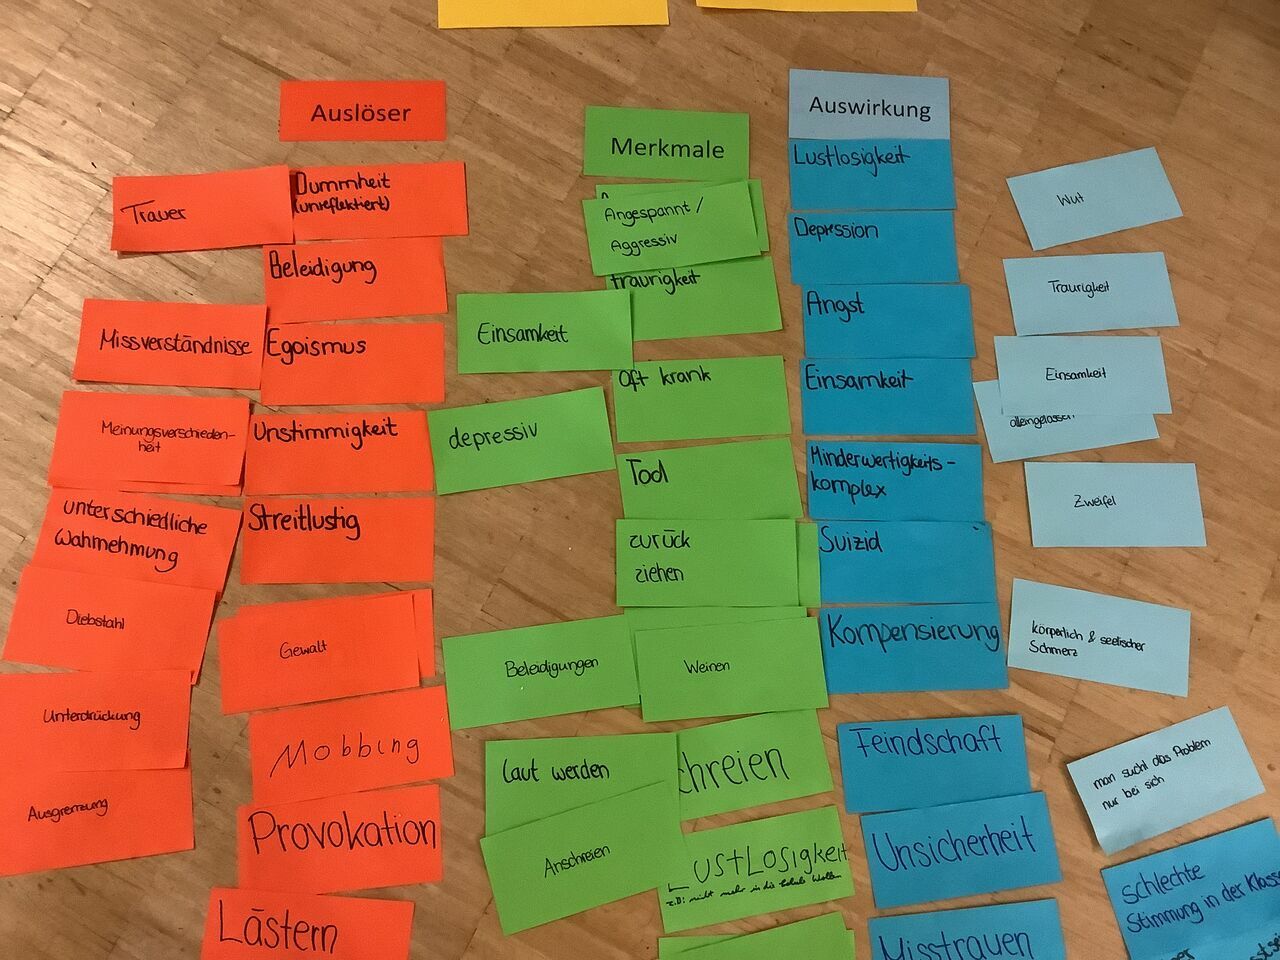 Auslöser
Trauer
Dummheit
(unreflektiert)
Beleidigung
Missverständnisse
Egoismus
Meinungsverschieden-
heit
Unstimmigkeit
unterschiedliche
Wahrnehmung
Streitlustig
Diebstahl
Gewalt
Unterdrückung
Mobbing
Ausgrenzung
Provokation
Lästern
Merkmale
Angespannt /
Aggressiv
traurigkeit
Einsamkeit
Oft krank
depressiv
Tod
zurück
ziehen
Beleidigungen
Weinen
laut werden
chreien
Anschreien
LustLosigkeit
z.B: nicht mehr in die Schule Wollen
Auswirkung
Lustlosigkeit
Depression
Angst
Einsamkeit
Minderwertigkeits-
komplex
Suizid
Kompensierung
Feindschaft
Unsicherheit
Misstrauen
Wut
Traurigkeit
Einsamkeit
alleingelassen
Zweifel
körperlich & seelischer
Schmerz
man sucht das Problem
nur bei sich
schlechte
Stimmung in der Klasse